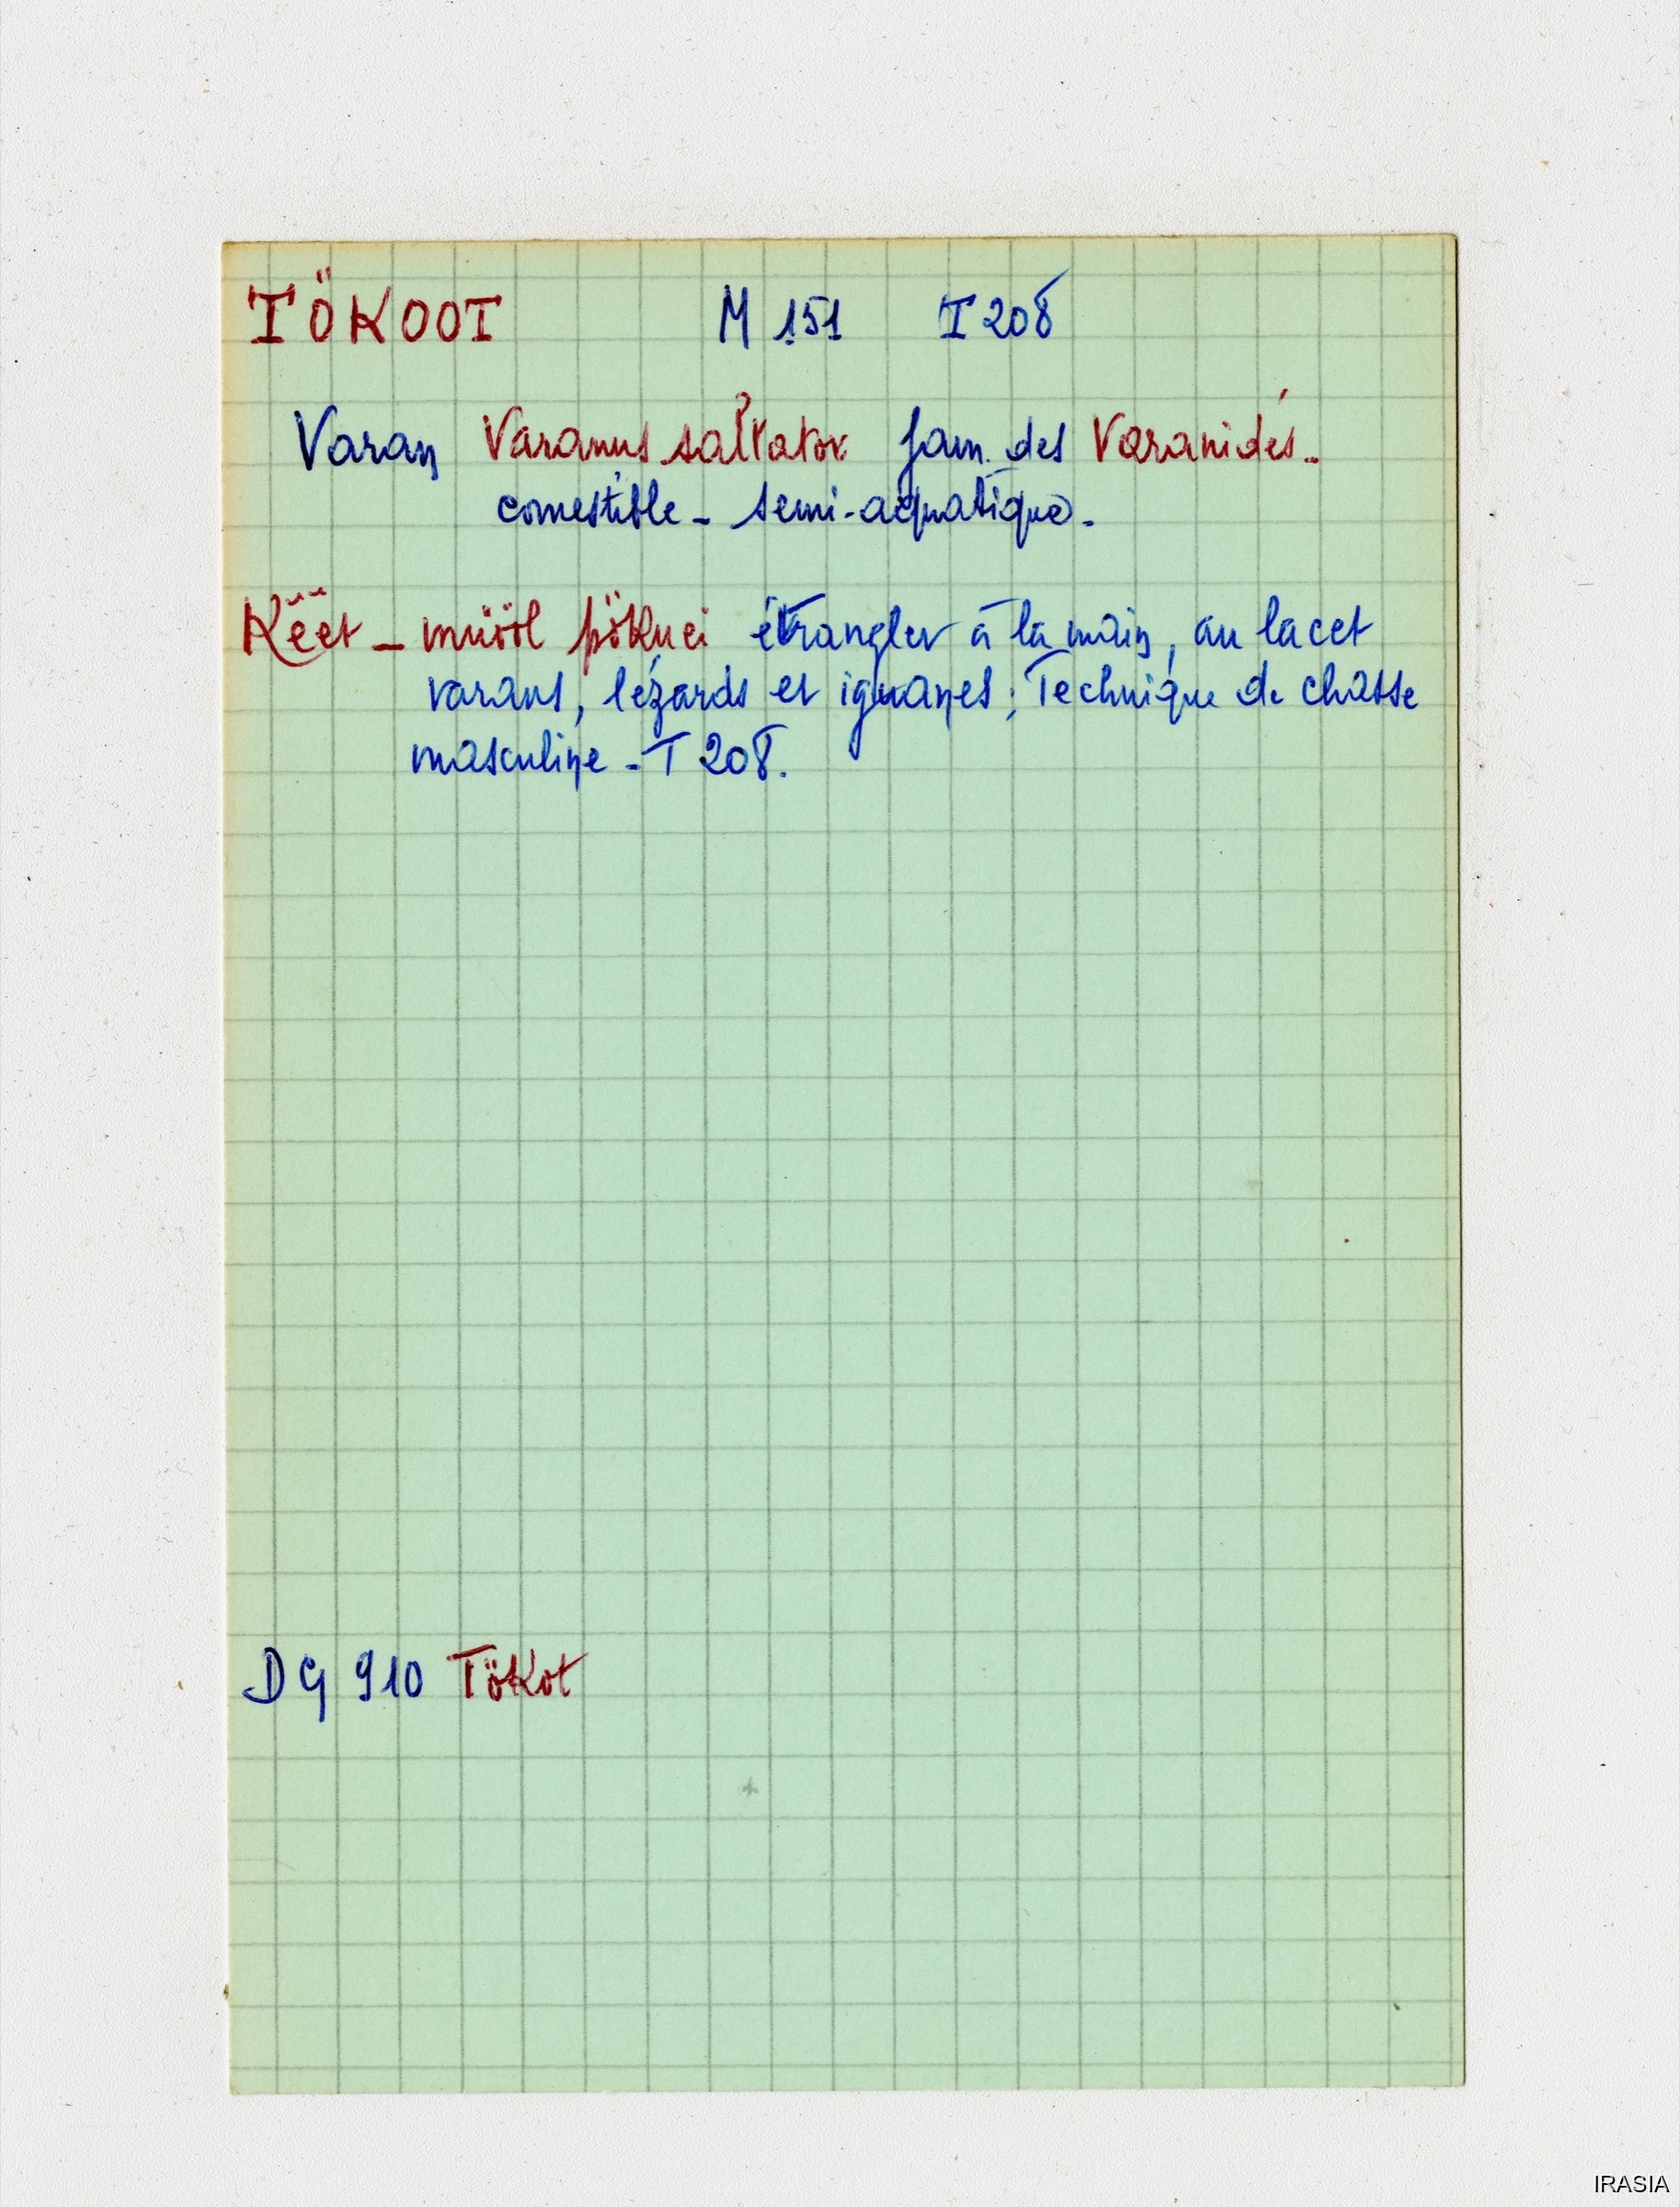 TÖKOOT M 151 T 208
Varan Varanus saltator fam. des Varanidés.
comestible - semi-aquatique.
Këët - müöl pökuei étrangler à la main, au lacet
varans, lézards et iguanes ; Technique de chasse
masculine - T 208.
DG 910 Tökot
IRASIA